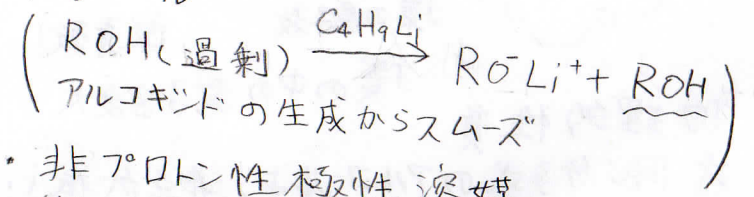 ROH(過剰) C4H9Li→ RO⁻Li⁺ + ROH
アルコキシドの生成からスムーズ
・非プロトン性極性溶媒